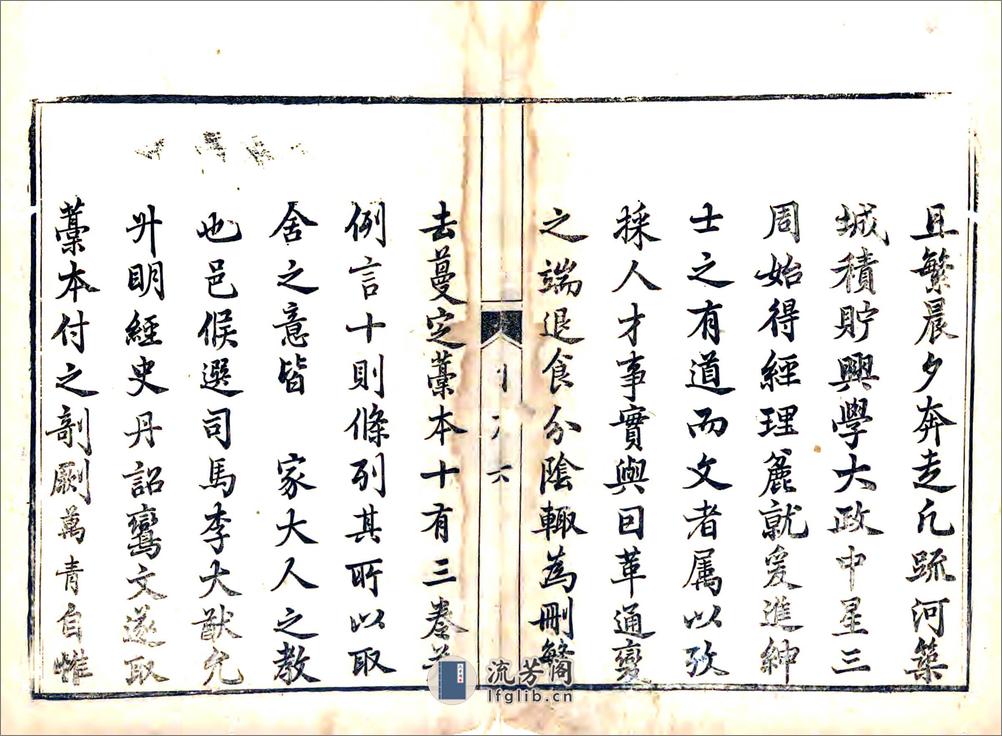 且繁晨夕奔走凡疏河築
城積貯興學大政中星三
周始得經理麄就爰進紳
士之有道而文者属以攷
採人才事實與曰革通變
之端退食分陰輙為刪繁
六
去蔓定藁本十有三卷並
例言十則條列其所以取
舍之意皆 家大人之教
也邑候選司馬李大猷允
升明經史丹詔鸞文遂取
藁本付之剞劂萬青自惟
流芳閣
lfglib.cn